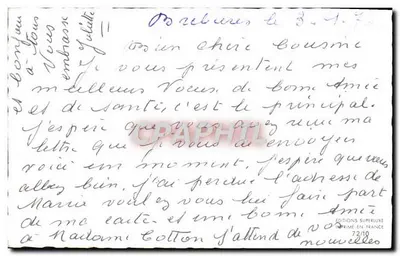 Brebières le 3.1.7
Bien chère Cousine
Je vous présentent mes
meilleurs Voeux de bonne Année
et de santé, c'est le principal.
J'espère que vous avez reçu ma
lettre que je vous ai envoyer
voici un moment, j'espère que vous
allez bien, j'ai perdue l'adresse de
Marie voulez vous lui faire part
de ma carte et une bonne Année
à Madame Cotton J'attend de vos
nouvelles
et bonjour
à tous
Vous
embrasse
Juliette
CRAPHIL
EDITIONS SUPERLUXE
IMPRIMÉ EN FRANCE
72/10